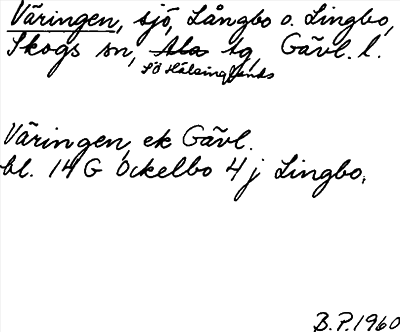 Väringen, sjö, Långbo o. Lingbo,
Skogs sn, Ala tg, Gävl. l.
Sö Hälsinglands
Väringen, ek Gävl.
bl. 14 G Ockelbo 4 j Lingbo.
B.P. 1960